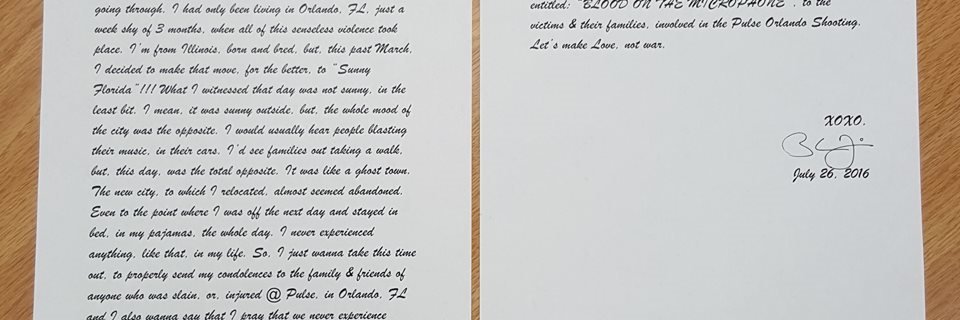 going through. I had only been living in Orlando, FL, just a
week shy of 3 months, when all of this senseless violence took
place. I'm from Illinois, born and bred, but, this past March,
I decided to make that move, for the better, to "Sunny
Florida"!!! What I witnessed that day was not sunny, in the
least bit. I mean, it was sunny outside, but, the whole mood of
the city was the opposite. I would usually hear people blasting
their music, in their cars. I'd see families out taking a walk,
but, this day, was the total opposite. It was like a ghost town.
The new city, to which I relocated, almost seemed abandoned.
Even to the point where I was off the next day and stayed in
bed, in my pajamas, the whole day. I never experienced
anything, like that, in my life. So, I just wanna take this time
out, to properly send my condolences to the family & friends of
anyone who was slain, or, injured @ Pulse, in Orlando, FL
and I also wanna say that I pray that we never experience
entitled: "BLOOD ON THE MICROPHONE", to the
victims & their families, involved in the Pulse Orlando Shooting.
Let's make Love, not war.
XOXO,
July 26, 2016